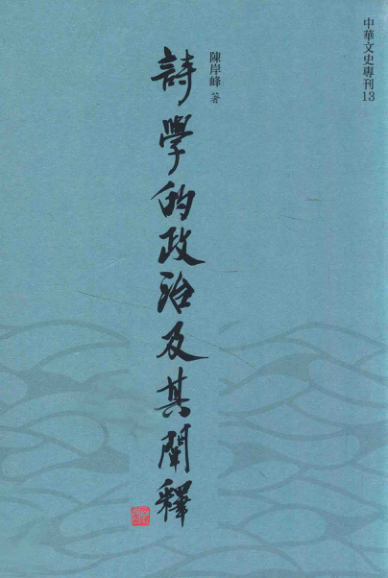 中華文史專刊13
陳岸峰 著
詩學的政治及其闡釋